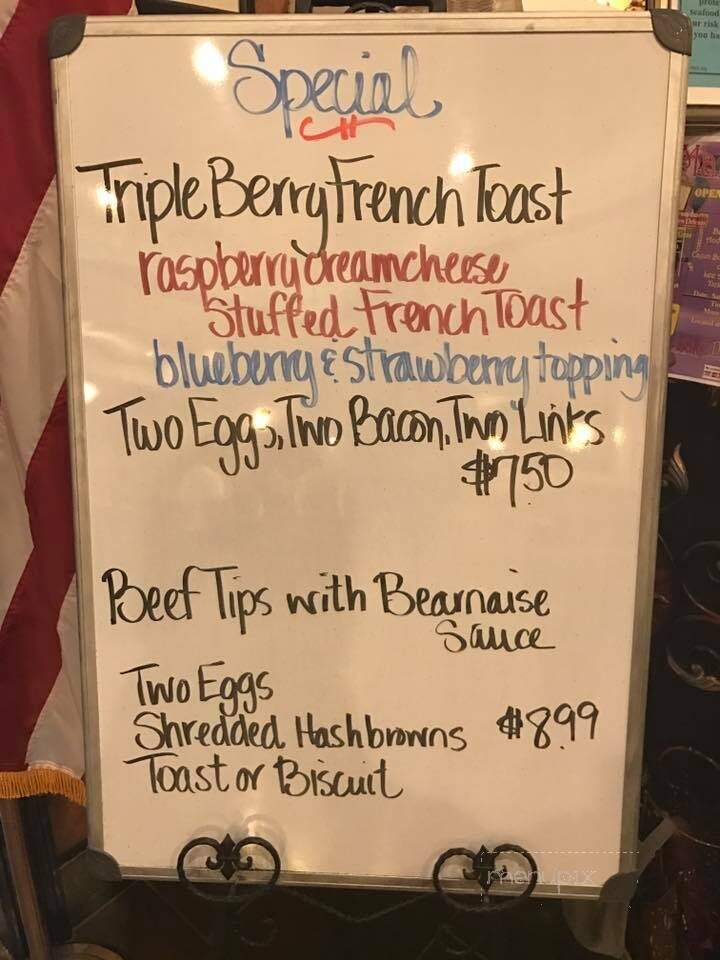 Special
Triple Berry French Toast
raspberry creamcheese
Stuffed French Toast
blueberry & strawberry topping
Two Eggs, Two Bacon, Two Links
$7.50
Beef Tips with Bearnaise
Sauce
Two Eggs
Shredded Hashbrowns $8.99
Toast or Biscuit
menupix
seafood
OPEN